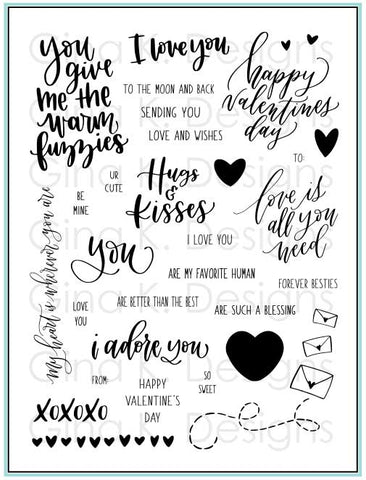 you
give
me the
warm
fuzzies
I love you
TO THE MOON AND BACK
SENDING YOU
LOVE AND WISHES
happy
valentines
day
TO:
UR
CUTE
BE
MINE
Hugs
&
Kisses
love is
all you
need
my heart is wherever you are
you
I LOVE YOU
ARE MY FAVORITE HUMAN
FOREVER BESTIES
ARE BETTER THAN THE BEST
ARE SUCH A BLESSING
LOVE
YOU
i adore you
FROM:
HAPPY
VALENTINE'S
DAY
SO
SWEET
XOXOXO
Gina K. Designs
Gina K. Designs
Gina K. Designs
Gina K. Designs
Gina K. Designs
Gina K. Designs